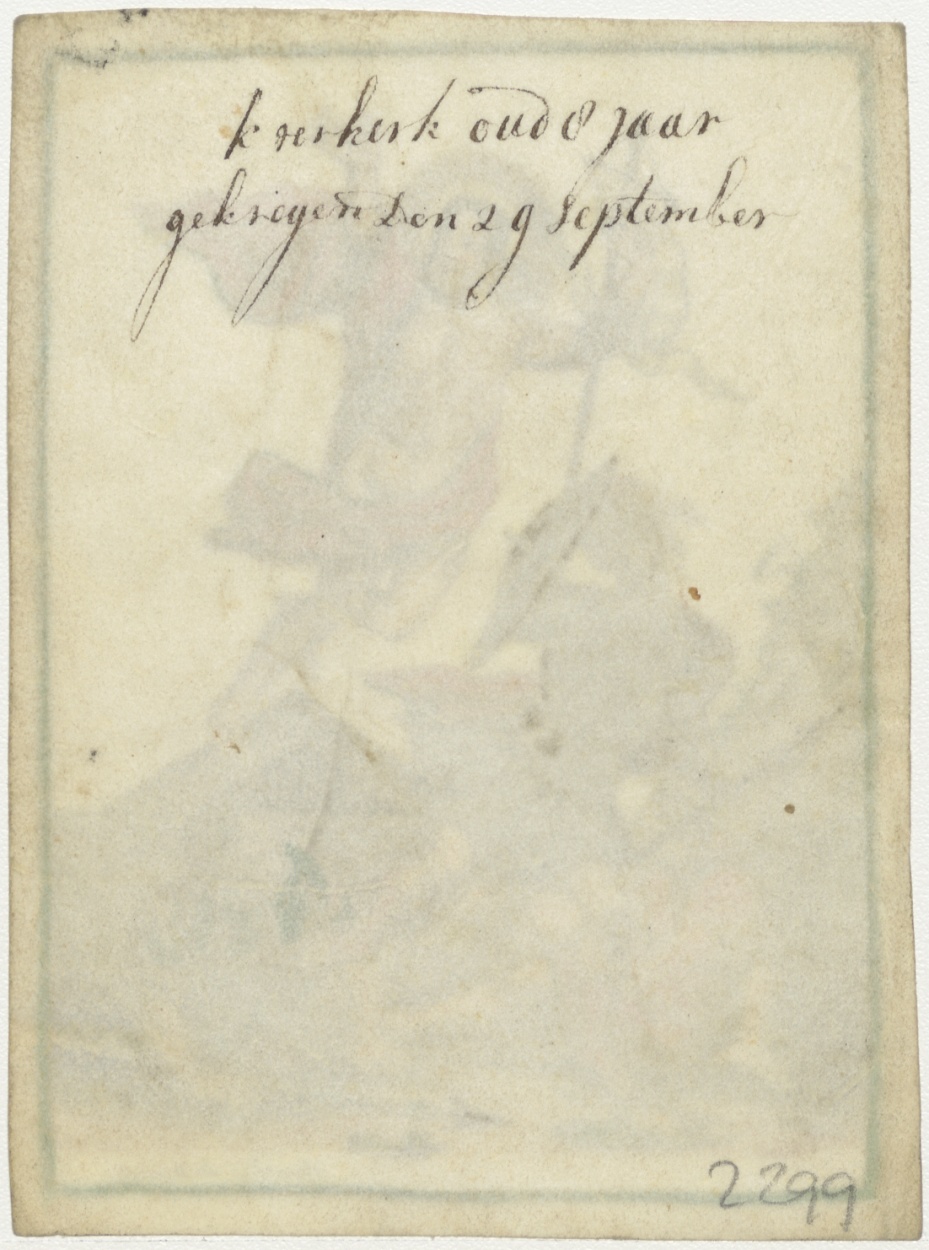 k verkerk oud 8 jaar
gekregen Den 29 September
2299